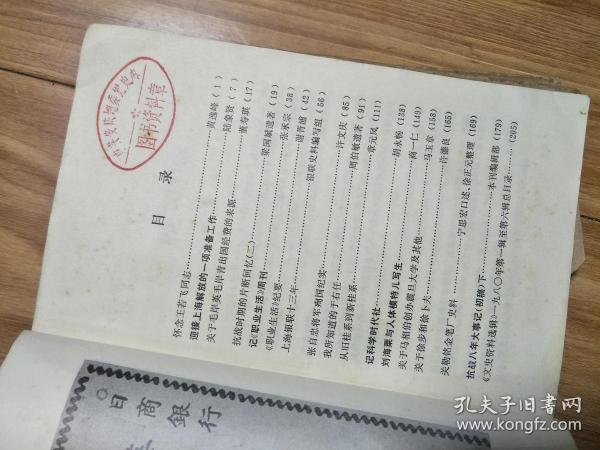 图书资料章
目 录
怀念王若飞同志……黄逸峰（1）
迎接上海解放的一项准备工作……陆象贤（7）
关于毛岸英毛岸青出国经费的来源……董寿琪（17）
抗战时期的片断回忆（二）……梁国斌遗著（19）
记《职业生活》周刊……张承宗（38）
《职业生活》纪要……（42）
上海银联十三年……银联史料编写组（56）
张自忠将军殉国纪实……许文庆（85）
我所知道的于右任……周伯敏遗著（91）
从旧桂系到新桂系……章元凤（111）
记科学时代社……胡永畅（138）
刘海粟与人体模特儿写生……商一仁（149）
关于马相伯创办震旦大学及其他……马玉章（158）
关于徐步和徐卜夫……许德良（165）
关勒铭金笔厂史料……宁思宏口述、徐正元整理（169）
抗战八年大事记（初稿）下……本刊编辑部（179）
《文史资料选辑》一九八〇年第一辑至第六辑总目录……（205）
日商銀行
孔夫子旧书网
www.kongfz.com